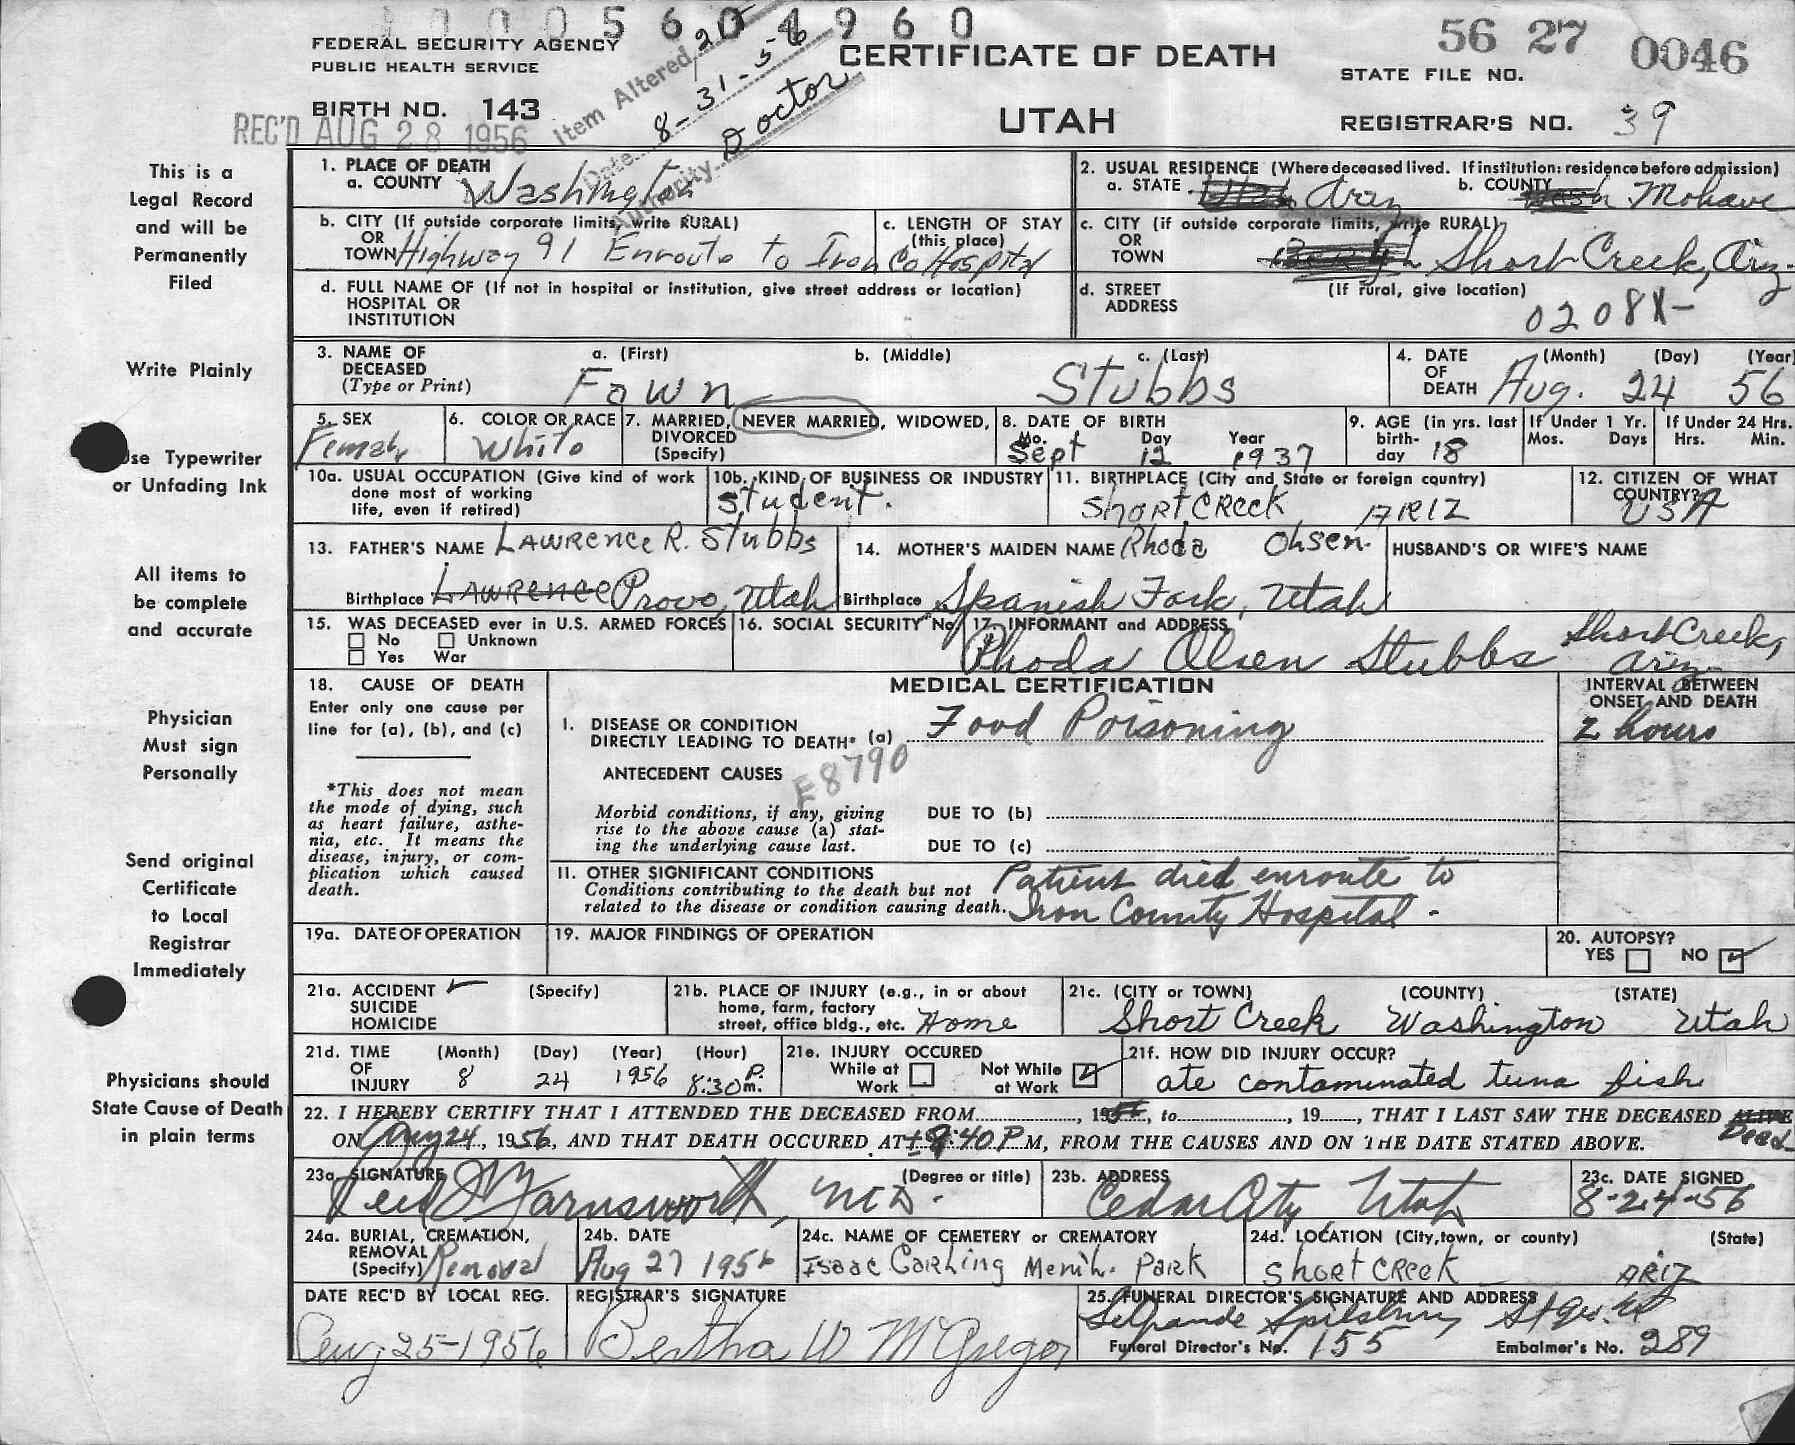 1 0 0 5 6 0 4 9 6 0
FEDERAL SECURITY AGENCY
PUBLIC HEALTH SERVICE
BIRTH NO. 143
REC'D AUG 28 1956
Item Altered 2
Date 8-31-56
Authority Doctor
CERTIFICATE OF DEATH
UTAH
56 27 0046
STATE FILE NO.
REGISTRAR'S NO. 39
This is a
Legal Record
and will be
Permanently
Filed
Write Plainly
Use Typewriter
or Unfading Ink
All items to
be complete
and accurate
Physician
Must sign
Personally
Send original
Certificate
to Local
Registrar
Immediately
Physicians should
State Cause of Death
in plain terms
1. PLACE OF DEATH
a. COUNTY Washington
2. USUAL RESIDENCE (Where deceased lived. If institution: residence before admission)
a. STATE Utah Ariz b. COUNTY Wash Mohave
b. CITY (If outside corporate limits, write RURAL)
OR
TOWN Highway 91 Enroute to Iron Co Hospital
c. LENGTH OF STAY
(this place)
c. CITY (if outside corporate limits, write RURAL)
OR
TOWN Short Creek, Ariz.
d. FULL NAME OF (If not in hospital or institution, give street address or location)
HOSPITAL OR
INSTITUTION
d. STREET (If rural, give location)
ADDRESS
0208X-
3. NAME OF DECEASED (Type or Print)
a. (First) b. (Middle) c. (Last)
Fawn Stubbs
4. DATE OF DEATH (Month) (Day) (Year)
Aug. 24 56
5. SEX
Female
6. COLOR OR RACE
White
7. MARRIED, NEVER MARRIED, WIDOWED,
DIVORCED
(Specify)
8. DATE OF BIRTH
Mo. Day Year
Sept 12 1937
9. AGE (in yrs. last birth-day 18
If Under 1 Yr.
Mos. Days
If Under 24 Hrs.
Hrs. Min.
10a. USUAL OCCUPATION (Give kind of work
done most of working
life, even if retired)
10b. KIND OF BUSINESS OR INDUSTRY
Student.
11. BIRTHPLACE (City and State or foreign country)
Short Creek ARIZ
12. CITIZEN OF WHAT
COUNTRY?
USA
13. FATHER'S NAME Lawrence R. Stubbs
Birthplace Lawrence Provo, Utah
14. MOTHER'S MAIDEN NAME Rhoda Ohsen.
Birthplace Spanish Fork, Utah
HUSBAND'S OR WIFE'S NAME
15. WAS DECEASED ever in U.S. ARMED FORCES
No Unknown
Yes War
16. SOCIAL SECURITY No.
17. INFORMANT and ADDRESS
Rhoda Olsen Stubbs Short Creek, Ariz.
18. CAUSE OF DEATH
Enter only one cause per
line for (a), (b), and (c)
*This does not mean
the mode of dying, such
as heart failure, asthe-
nia, etc. It means the
disease, injury, or com-
plication which caused
death.
MEDICAL CERTIFICATION
INTERVAL BETWEEN
ONSET AND DEATH
I. DISEASE OR CONDITION
DIRECTLY LEADING TO DEATH* (a) Food Poisoning 2 hours
ANTECEDENT CAUSES
E8790
Morbid conditions, if any, giving
rise to the above cause (a) stat-
ing the underlying cause last.
DUE TO (b)
DUE TO (c)
II. OTHER SIGNIFICANT CONDITIONS
Conditions contributing to the death but not
related to the disease or condition causing death.
Patient died enroute to
Iron County Hospital.
19a. DATE OF OPERATION
19. MAJOR FINDINGS OF OPERATION
20. AUTOPSY?
YES NO
21a. ACCIDENT (Specify)
SUICIDE
HOMICIDE
21b. PLACE OF INJURY (e.g., in or about
home, farm, factory
street, office bldg., etc. Home
21c. (CITY or TOWN) (COUNTY) (STATE)
Short Creek Washington Utah
21d. TIME OF INJURY (Month) (Day) (Year) (Hour)
8 24 1956 8:30 P. m.
21e. INJURY OCCURED
While at Work Not While at Work
21f. HOW DID INJURY OCCUR?
ate contaminated tuna fish
22. I HEREBY CERTIFY THAT I ATTENDED THE DECEASED FROM , 1956, to , 19 , THAT I LAST SAW THE DECEASED ALIVE Dead
ON Aug 24, 1956, AND THAT DEATH OCCURED AT ± 9:40 P M, FROM THE CAUSES AND ON THE DATE STATED ABOVE.
23a. SIGNATURE (Degree or title)
Reid Farnsworth, M.D.
23b. ADDRESS
Cedar City Utah
23c. DATE SIGNED
8-24-56
24a. BURIAL, CREMATION,
REMOVAL
(Specify) Removal
24b. DATE
Aug 27 1956
24c. NAME OF CEMETERY or CREMATORY
Isaac Carling Park
24d. LOCATION (City, town, or county) (State)
Short Creek ARIZ
DATE REC'D BY LOCAL REG.
Aug 25-1956
REGISTRAR'S SIGNATURE
Bertha W McGregor
25. FUNERAL DIRECTOR'S SIGNATURE AND ADDRESS
Spilsbury
Funeral Director's No. 155 Embalmer's No. 289